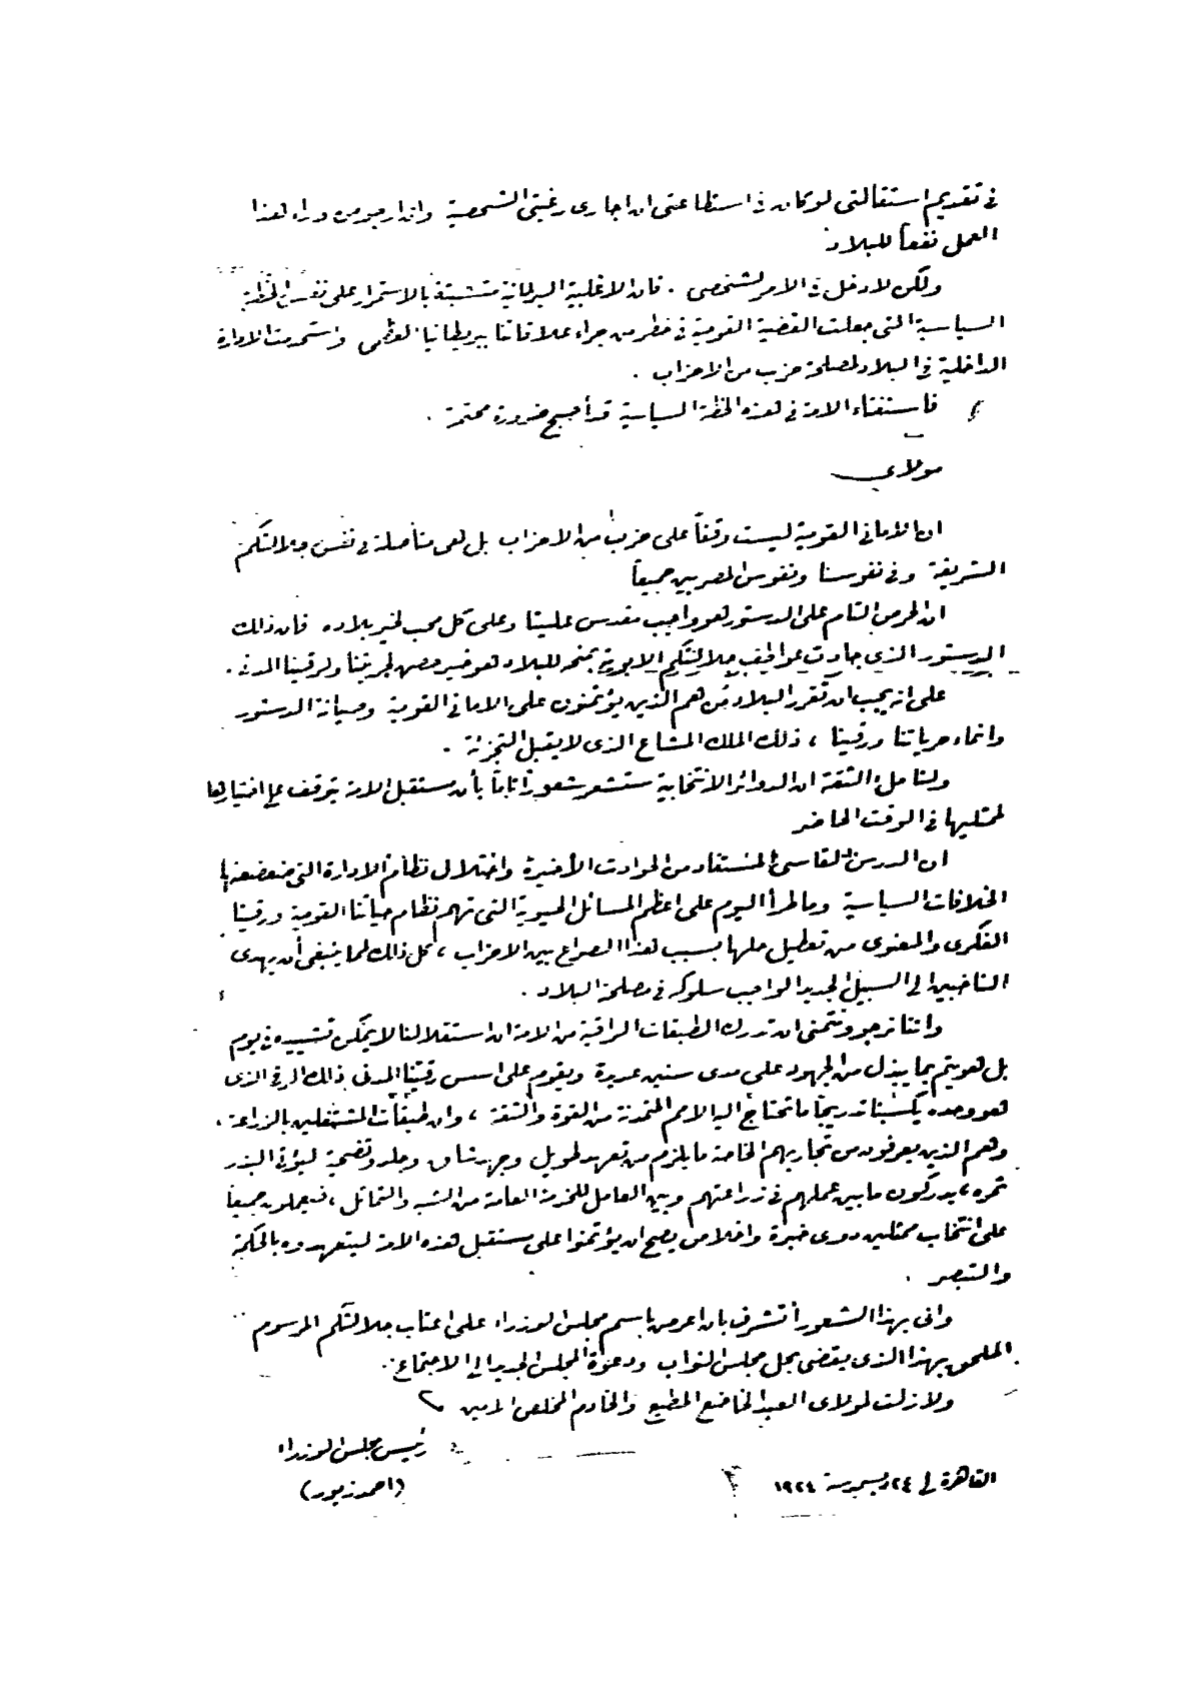 فى تقديم استقالتى لو كان فى استطاعتى ان اجارى رغبتى الشخصية وانا ارجو من وراء هذا
العمل نفعاً للبلاد
ولكن لا دخل فى الامر لشخصى . فان الاغلبية البرلمانية متشبثة بالاستمرار على نفس الخطة
السياسية التى جعلت القضية القومية فى خطر من جراء علاقاتنا ببريطانيا العظمى واستخدمت الادارة
الداخلية فى البلاد لمصلحة حزب من الاحزاب .
فاستفتاء الامة فى هذه الخطة السياسية قد أصبح ضرورة محتمة .
مولاي
ان الامانى القومية ليست وقفاً على حزب من الاحزاب بل هى متأصلة فى نفس جلالتكم
الشريفة وفى نفوسنا ونفوس المصريين جميعاً
ان الحرص التام على الدستور هو واجب مقدس علينا وعلى كل محب لخير بلاده فان ذلك
الدستور الذى جادت عواطف جلالتكم الابوية بمنحه للبلاد هو خير حصن لحريتنا ولرقينا المدنى .
على انه يجب ان تقرر البلاد من هم الذين يؤتمنون على الامانى القومية وصيانة الدستور
وانماء حرياتنا ورقينا ، ذلك الملك المشاع الذى لا يقبل التجزئة .
ولنا ملء الثقة ان الدوائر الانتخابية ستشعر شعوراً تاماً بأن مستقبل الامة يتوقف على اختيارها
لممثليها فى الوقت الحاضر
ان الدرس القاسى المستفاد من الحوادث الأخيرة واختلال نظام الادارة التى ضعضعتها
الخلافات السياسية وما طرأ اليوم على اعظم المسائل الحيوية التى تهم نظام حياتنا القومية ورقينا
الفكرى والمعنوى من تعطيل حلها بسبب هذا الصراع بين الاحزاب ، كل ذلك لمما ينبغى أن يهدى
الناخبين الى السبيل الجديد الواجب سلوكه فى مصلحة البلاد .
واننا نرجو ونتمنى ان تدرك الطبقات الراقية من الامة ان استقلالنا لا يمكن تشييده فى يوم
بل هو يتم بما يبذل من الجهود على مدى سنين عديدة ويقوم على اسس رقينا المدنى ذلك الرقى الذى
هو وحده يكسبنا تدريجاً ما تحتاج اليه الامم المتمدنة من القوة والثقة ، وان طبقات المشتغلين بالزراعة ،
وهم الذين يعرفون من تجاربهم الخاصة ما يلزم من تعهد طويل وجهد شاق وجلد وتضحية ليؤتى البذر
ثمره ، يدركون ما بين عملهم فى زراعتهم وبين العامل للخدمة العامة من الشبه والتماثل ، فيعملون جميعاً
على انتخاب ممثلين ذوى خبرة واخلاص يصح ان يؤتمنوا على مستقبل هذه الامة ليتعهدوه بالحكمة
والتبصر .
وانى بهذا الشعور أتشرف بان اعرض باسم مجلس الوزراء على اعتاب جلالتكم المرسوم
الملحق بهذا الذى يقضى بحل مجلس النواب ودعوة المجلس الجديد الى الاجتماع .
ولا زلت لمولاى العبد الخاضع المطيع والخادم المخلص الامين
رئيس مجلس الوزراء
القاهرة فى ٢٤ ديسمبر سنة ١٩٢٤
(احمد زيور)